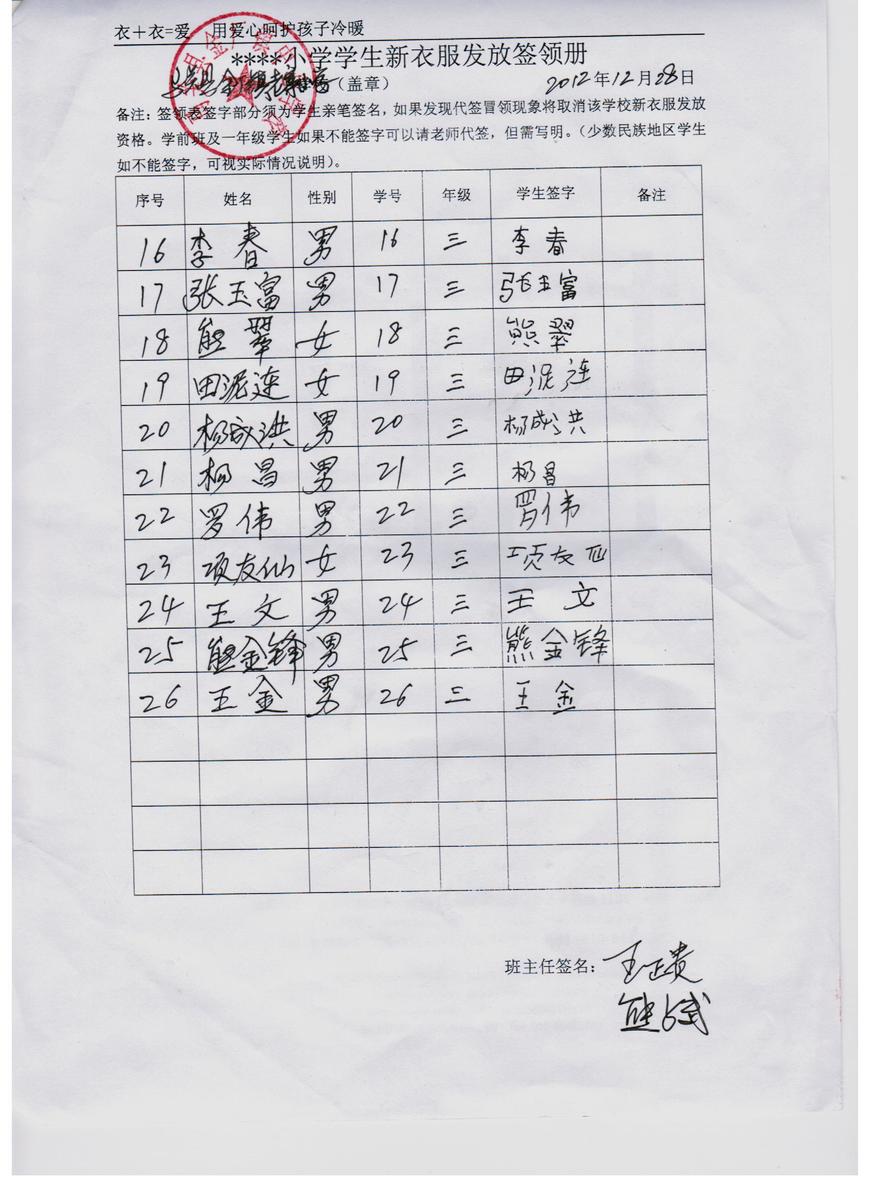 衣＋衣=爱 用爱心呵护孩子冷暖
****小学学生新衣服发放签领册
（盖章） 2012年12月28日
备注：签领表签字部分须为学生亲笔签名，如果发现代签冒领现象将取消该学校新衣服发放
资格。学前班及一年级学生如果不能签字可以请老师代签，但需写明。（少数民族地区学生
如不能签字，可视实际情况说明）。
序号 姓名 性别 学号 年级 学生签字 备注
16 李春 男 16 三 李春
17 张玉富 男 17 三 张玉富
18 熊翠 女 18 三 熊翠
19 田泥连 女 19 三 田泥连
20 杨成洪 男 20 三 杨成洪
21 杨昌 男 21 三 杨昌
22 罗伟 男 22 三 罗伟
23 项友仙 女 23 三 项友仙
24 王文 男 24 三 王文
25 熊金锋 男 25 三 熊金锋
26 王金 男 26 三 王金
班主任签名：王正贵